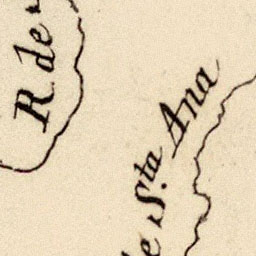 R. de
de Sta Ana